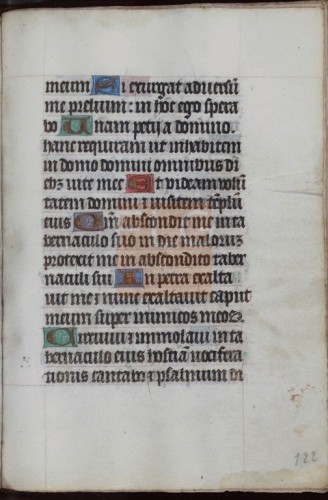 meum Si exurgat adversū
me prelium: in hoc ego spera
bo Unam petij a domino.
hanc requiram ut inhabitem
in domo domini omnibus di
ebꝫ vite mee Et videam volū
tatem domini ⁊ visitem tēplū
eius Qm̄ abscondit me in ta
bernaculo suo in die maloruꝫ
protexit me in abscondito taber
naculi sui In petra exalta
vit me ⁊ nunc exaltavit caput
meum super inimicos meos.
Circuivi ⁊ immolavi in ta
bernaculo eius hostiā vocifera
tionis cantabo ⁊ psalmum di
122